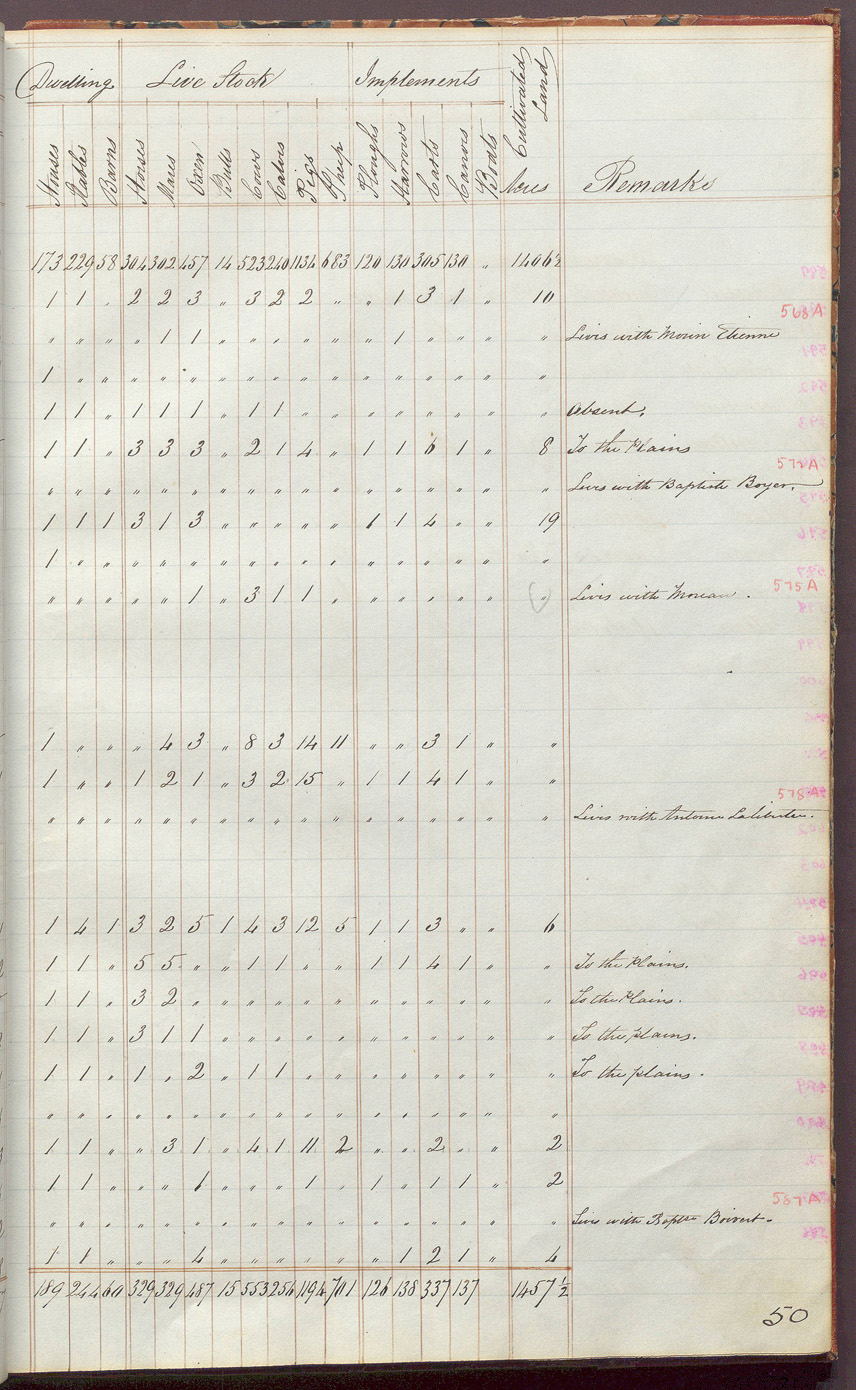 Dwelling Live Stock Implements Cultivated Land
Houses Stables Barns Horses Mares Oxen Bulls Cows Calves Pigs Sheep Ploughs Harrows Carts Canoes Boats Acres Remarks
173 229 58 304 302 457 14 523 240 1134 683 120 130 305 130 " 1406½
1 1 " 2 2 3 " 3 2 2 " " 1 3 1 " 10
568A
" " " " 1 1 " " " " " " 1 " " " " Livis with Morin Etienne
1 " " " " " " " " " " " " " " " "
1 1 " 1 1 1 " 1 1 " " " " " " " " Absent.
1 1 " 3 3 3 " 2 1 4 " 1 1 6 1 " 8 To the Plains
572A
" " " " " " " " " " " " " " " " " Livis with Baptiste Boyer.
1 1 1 3 1 3 " " " " " 1 1 4 " " 19
1 " " " " " " " " " " " " " " " "
575A
" " " " " 1 " 3 1 1 " " " " " " " Livis with Moreau.
1 " " " 4 3 " 8 3 14 11 " " 3 1 " "
1 " " 1 2 1 " 3 2 15 " 1 1 4 1 " "
578A
" " " " " " " " " " " " " " " " " Livis with Antoine Laliberte.
1 4 1 3 2 5 1 4 3 12 5 1 1 3 " " 6
1 1 " 5 5 " " 1 1 " " 1 1 4 1 " " To the Plains.
1 1 " 3 2 " " " " " " " " " " " " To the Plains.
1 1 " 3 1 1 " " " " " " " " " " " To the plains.
1 1 " 1 " 2 " 1 1 " " " " " " " " To the plains.
" " " " " " " " " " " " " " " " "
1 1 " " 3 1 " 4 1 11 2 " " 2 " " 2
1 1 " " " 1 " " " 1 " 1 " 1 1 " 2
587A
" " " " " " " " " " " " " " " " " Livis with Baptse Boivert.
1 1 " " " 4 " " " " " " 1 2 1 " 4
189 244 60 329 329 487 15 553 256 1194 701 126 138 337 137 1457½
50